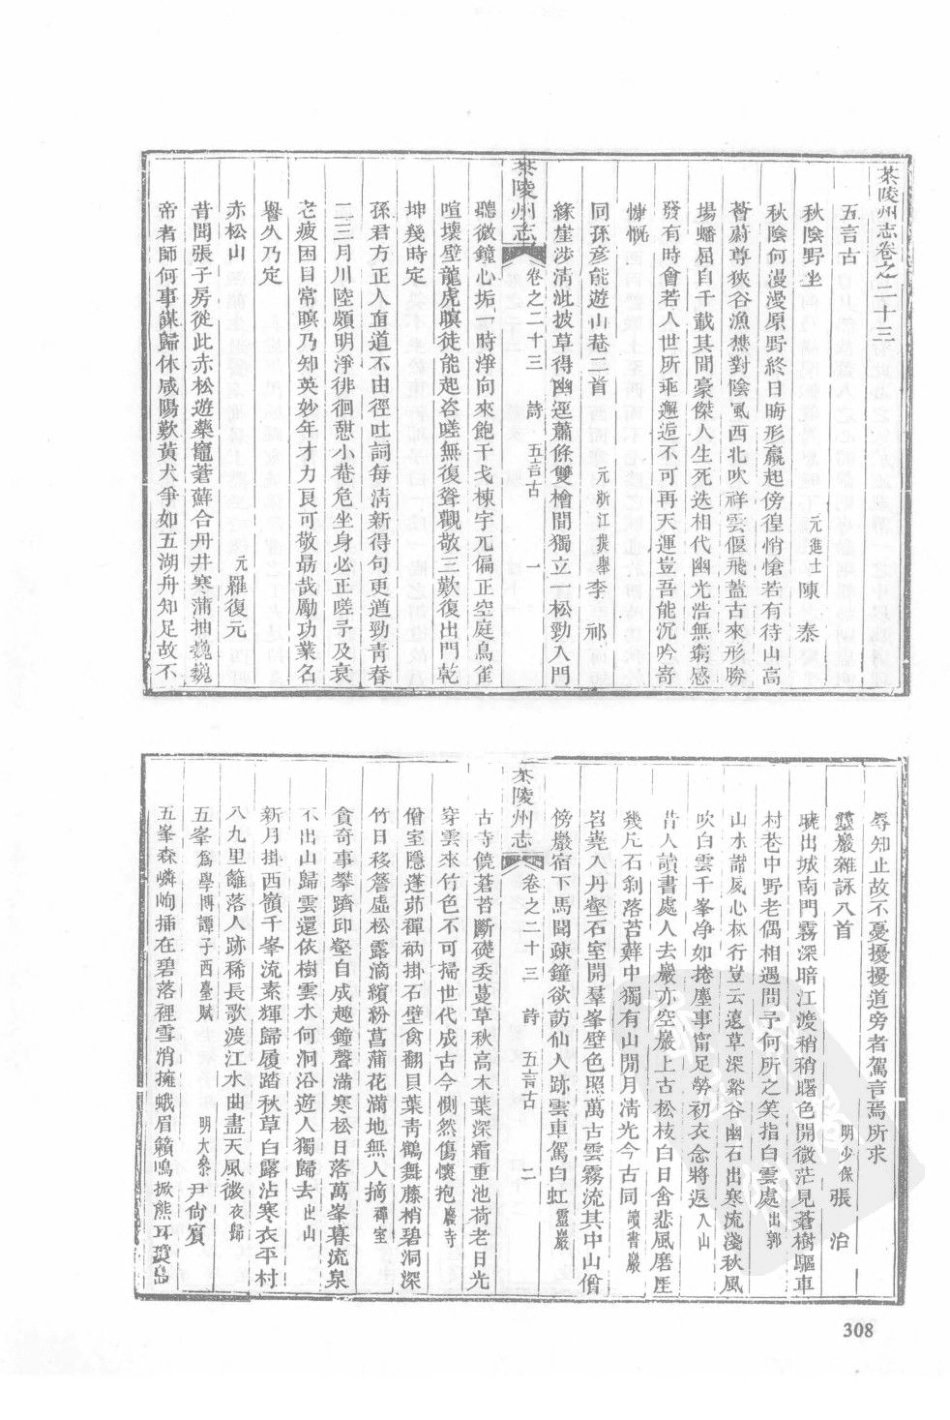 茶陵州志卷之二十三
五言古
秋陰野坐 元進士陳 泰
秋陰何漫漫原野終日晦形羸起傍徨悄愴若有待山高
薈蔚尊狹谷漁樵對陰風西北吹祥雲偃飛蓋古來形勝
場蟠屈自千載其間豪傑人生死迭相代幽光浩無窮感
發有時會若人世所乖邂逅不可再天運豈吾能沉吟寄
慷慨
同孫彥能遊山巷二首 元浙江提舉李 祁
緣崖涉清沘披草得幽逕蕭條雙檜間獨立一松勁入門
茶陵州志 卷之二十三 詩 五言古 一
聽微鐘心垢一時淨向來飽干戈棟宇兀偏正空庭鳥雀
喧壞壁龍虎瞑徒能起咨嗟無復聳觀敬三歎復出門乾
坤幾時定
孫君方正人直道不由徑吐詞每清新得句更道勁青春
二三月川陸頗明淨徘徊憩小巷危坐身必正嗟予及衰
老疲困日常瞑乃知英妙年才力良可敬勗哉勵功業名
譽久乃定
赤松山 元羅復元
昔聞張子房從此赤松遊藥竈蒼蘚合丹井寒蒲抽巍巍
帝者師何事謀歸休咸陽歎黃犬爭如五湖舟知足故不
辱知止故不憂擾擾道旁者駕言焉所求
靈巖雜詠八首 明少保張 治
曉出城南門霧深暗江渡稍稍曙色開微茫見蒼樹驅車
村巷中野老偶相遇問予何所之笑指白雲處出郭
山水諧夙心林行豈云遠草深谿谷幽石出寒流淺秋風
吹白雲千峯净如捲塵事甯足勞初衣念將返入山
昔人讀書處人去巖亦空巖上古松枝白日舍悲風磨厓
幾片石剝落苔蘚中獨有山閒月清光今古同讀書巖
岧嶤入丹壑石室開羣峯壁色照萬古雲霧流其中山僧
傍巖宿下馬聞疎鐘欲訪仙人跡雲車駕白虹靈巖
茶陵州志 卷之二十三 詩 五言古 二
古寺饒蒼苔斷礎委蔓草秋高木葉深霜重池荷老日光
穿雲來竹色不可掃世代成古今惻然傷懷抱巖寺
僧室隱蓬茆禪衲掛石壁禽翻貝葉靑鶴舞藤梢碧洞深
竹日移簷虛松露滴繽紛菖蒲花滿地無人摘禪室
貪奇事攀躋印壑自成趣鐘聲滿寒松日落萬峯暮流泉
不出山歸雲還依樹雲水何泂沿遊人獨歸去出山
新月掛西嶺千峯流素輝歸履踏秋草白露沾寒衣平村
八九里籬落人跡稀長歌渡江水曲盡天風微夜歸
五峯為學博譚子西臺賦 明大參尹尙賓
五峯森嶙峋揷在碧落裡雪消擁蛾眉籟鳴掀熊耳
308